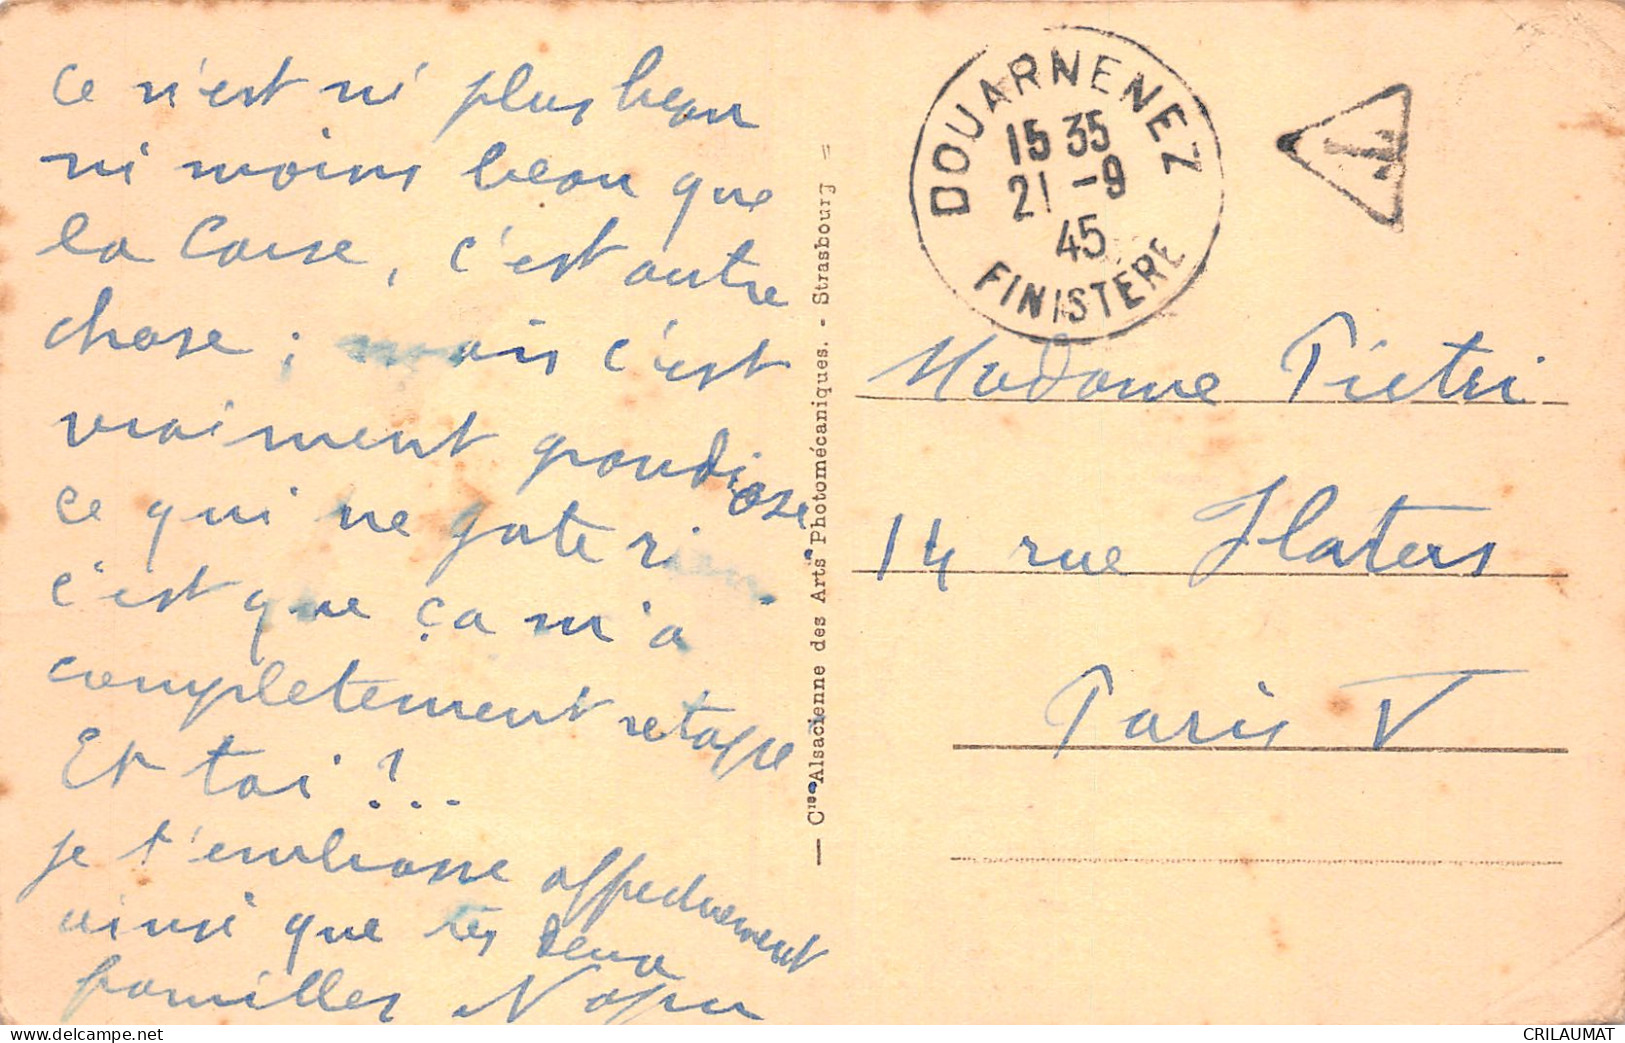 ce n'est ni plus beau
ni moins beau que
la Corse, c'est autre
chose ; mais c'est
vraiment grandiose
ce qui ne gate rien
c'est que ça m'a
completement retapé
Et toi ?..
je t'embrasse affectueusement
ainsi que tes deux
familles
— Cie Alsacienne des Arts Photomécaniques. - Strasbourg =
DOUARNENEZ
15 35
21 -9
45
FINISTERE
T
Madame Pietri
14 rue Flatters
Paris V
www.delcampe.net
CRILAUMAT